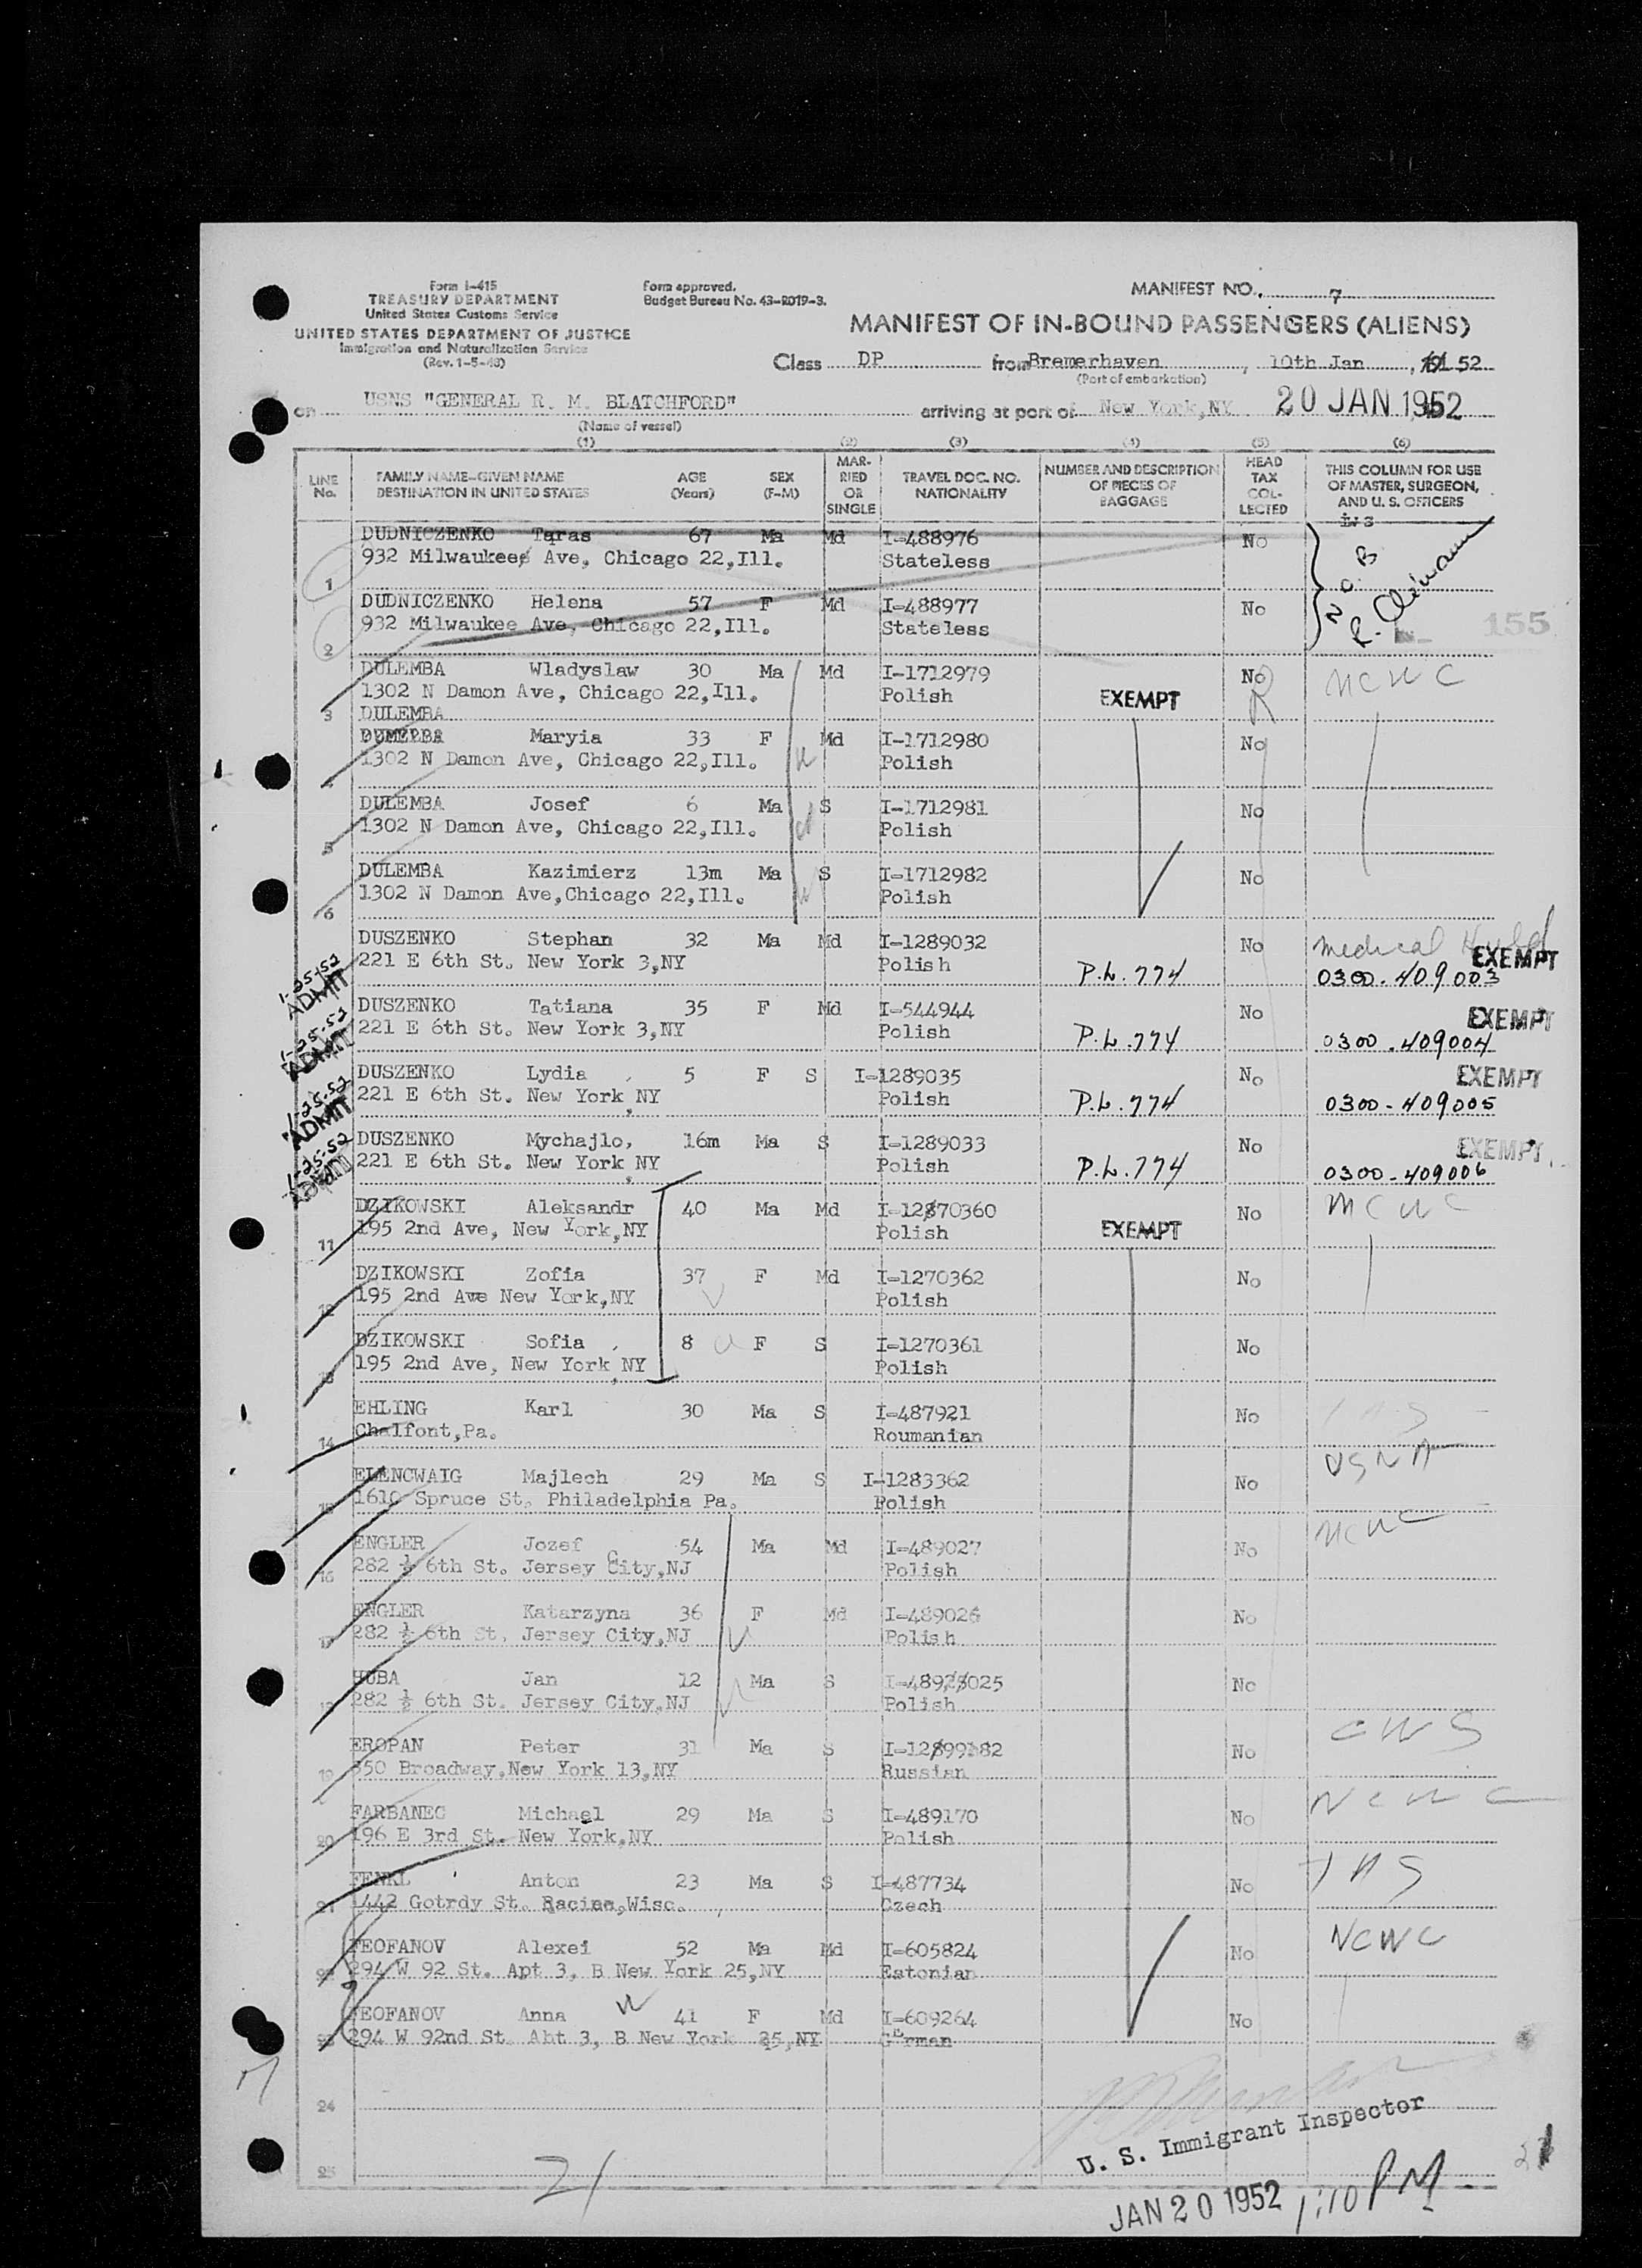 Form I-415
TREASURY DEPARTMENT
United States Customs Service
UNITED STATES DEPARTMENT OF JUSTICE
Immigration and Naturalization Service
(Rev. 1-5-48)
Form approved.
Budget Bureau No. 43-R019-3.
MANIFEST NO. 7
MANIFEST OF IN-BOUND PASSENGERS (ALIENS)
Class DP from Bremerhaven, 10th Jan, 52
(Port of embarkation)
on USNS "GENERAL R. M. BLATCHFORD" arriving at port of New York,NY 20 JAN 1952
(Name of vessel)
(1) (2) (3) (4) (5) (6)
LINE No.
FAMILY NAME-GIVEN NAME DESTINATION IN UNITED STATES
AGE (Years)
SEX (F-M)
MARRIED OR SINGLE
TRAVEL DOC. NO. NATIONALITY
NUMBER AND DESCRIPTION OF PIECES OF BAGGAGE
HEAD TAX COLLECTED
THIS COLUMN FOR USE OF MASTER, SURGEON, AND U. S. OFFICERS
DUDNICZENKO Taras 67 Ma Md I-488976 No
1 932 Milwaukee Ave, Chicago 22,Ill. Stateless
N O B
DUDNICZENKO Helena 57 F Md I-488977 No
2 932 Milwaukee Ave, Chicago 22,Ill. Stateless
155
DULEMBA Wladyslaw 30 Ma Md I-1712979 No NCWC
1302 N Damon Ave, Chicago 22,Ill. Polish EXEMPT
3 DULEMBA
Maryia 33 F Md I-1712980 No
4 1302 N Damon Ave, Chicago 22,Ill. Polish
DULEMBA Josef 6 Ma S I-1712981 No
5 1302 N Damon Ave, Chicago 22,Ill. Polish
DULEMBA Kazimierz 13m Ma S I-1712982 No
6 1302 N Damon Ave,Chicago 22,Ill. Polish
DUSZENKO Stephan 32 Ma Md I-1289032 No Medical Hold
1-25-52 ADMIT 221 E 6th St. New York 3,NY Polish P.L.774 EXEMPT 0300-409003
DUSZENKO Tatiana 35 F Md I-544944 No EXEMPT
1-25-52 ADMIT 221 E 6th St. New York 3,NY Polish P.L.774 0300-409004
DUSZENKO Lydia 5 F S I-1289035 No EXEMPT
1-25-52 ADMIT 221 E 6th St. New York,NY Polish P.L.774 0300-409005
DUSZENKO Mychajlo, 16m Ma S I-1289033 No EXEMPT
1-25-52 ADMIT 221 E 6th St. New York,NY Polish P.L.774 0300-409006
DZIKOWSKI Aleksandr 40 Ma Md I-1270360 No NCWC
11 195 2nd Ave, New York,NY Polish EXEMPT
DZIKOWSKI Zofia 37 F Md I-1270362 No
12 195 2nd Ave New York,NY Polish
DZIKOWSKI Sofia 8 F S I-1270361 No
13 195 2nd Ave, New York,NY Polish
EHLING Karl 30 Ma S I-487921 No
14 Chalfont,Pa. Roumanian
ELENCWAIG Majlech 29 Ma S I-1283362 No USNA
15 1610 Spruce St. Philadelphia Pa. Polish
ENGLER Jozef 54 Ma Md I-489027 No NCWC
16 282 ½ 6th St. Jersey City,NJ Polish
ENGLER Katarzyna 36 F Md I-489026 No
17 282 ½ 6th St. Jersey City,NJ Polish
HUBA Jan 12 Ma S I-489025 No
18 282 ½ 6th St. Jersey City,NJ Polish
EROPAN Peter 31 Ma S No CWS
19 350 Broadway,New York 13,NY Russian
FARBANEC Michael 29 Ma S I-489170 No NCWC
20 196 E 3rd St. New York,NY Polish
FENKL Anton 23 Ma S I-487734 No
21 1442 Gotrdy St. Racine,Wisc. Czech
FEOFANOV Alexei 52 Ma Md I-605824 No NCWC
22 294 W 92 St. Apt 3, B New York 25,NY Estonian
FEOFANOV Anna 41 F Md I-609264 No
23 294 W 92nd St. Abt 3, B New York 25,NY German
24
25
21
U. S. Immigrant Inspector
JAN 20 1952 1:10 PM